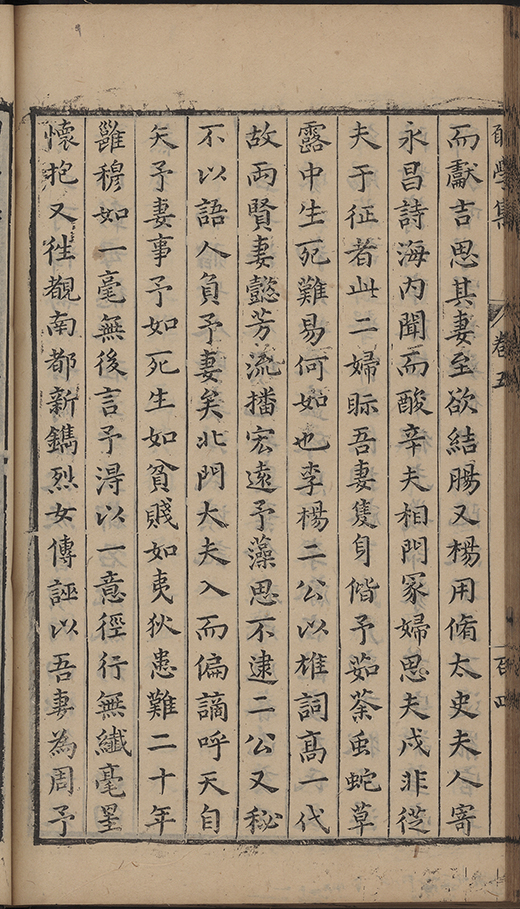 而獻吉思其妻至欲結腸又楊用脩太史夫人寄
永昌詩海內聞而酸辛夫相門冢婦思夫戍非從
夫于征者此二婦眎吾妻隻身偕予茹荼䖝蛇草
露中生死難易何如也李楊二公以雄詞髙一代
故兩賢妻懿芳流播宏遠予藻思不逮二公又秘
不以語人負予妻矣北門大夫入而徧謫呼天自
矢予妻事予如死生如貧賤如夷狄患難二十年
雝穆如一毫無後言予淂以一意徑行無纖毫罣
懷抱又徃覩南都新鐫烈女傳誣以吾妻為周予
學集
卷五
百四